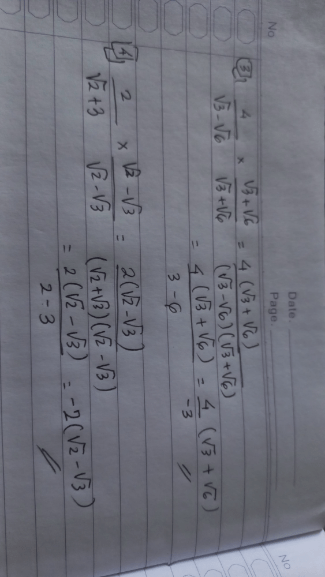 No
Date
Page
③ 4/(√3-√6) × (√3+√6)/(√3+√6) = 4(√3+√6)/((√3-√6)(√3+√6))
= 4(√3+√6)/(3-6) = 4/-3 (√3+√6)
④ 2/(√2+3) × (√2-√3)/(√2-√3) = 2(√2-√3)/((√2+√3)(√2-√3))
= 2(√2-√3)/(2-3) = -2(√2-√3)
No